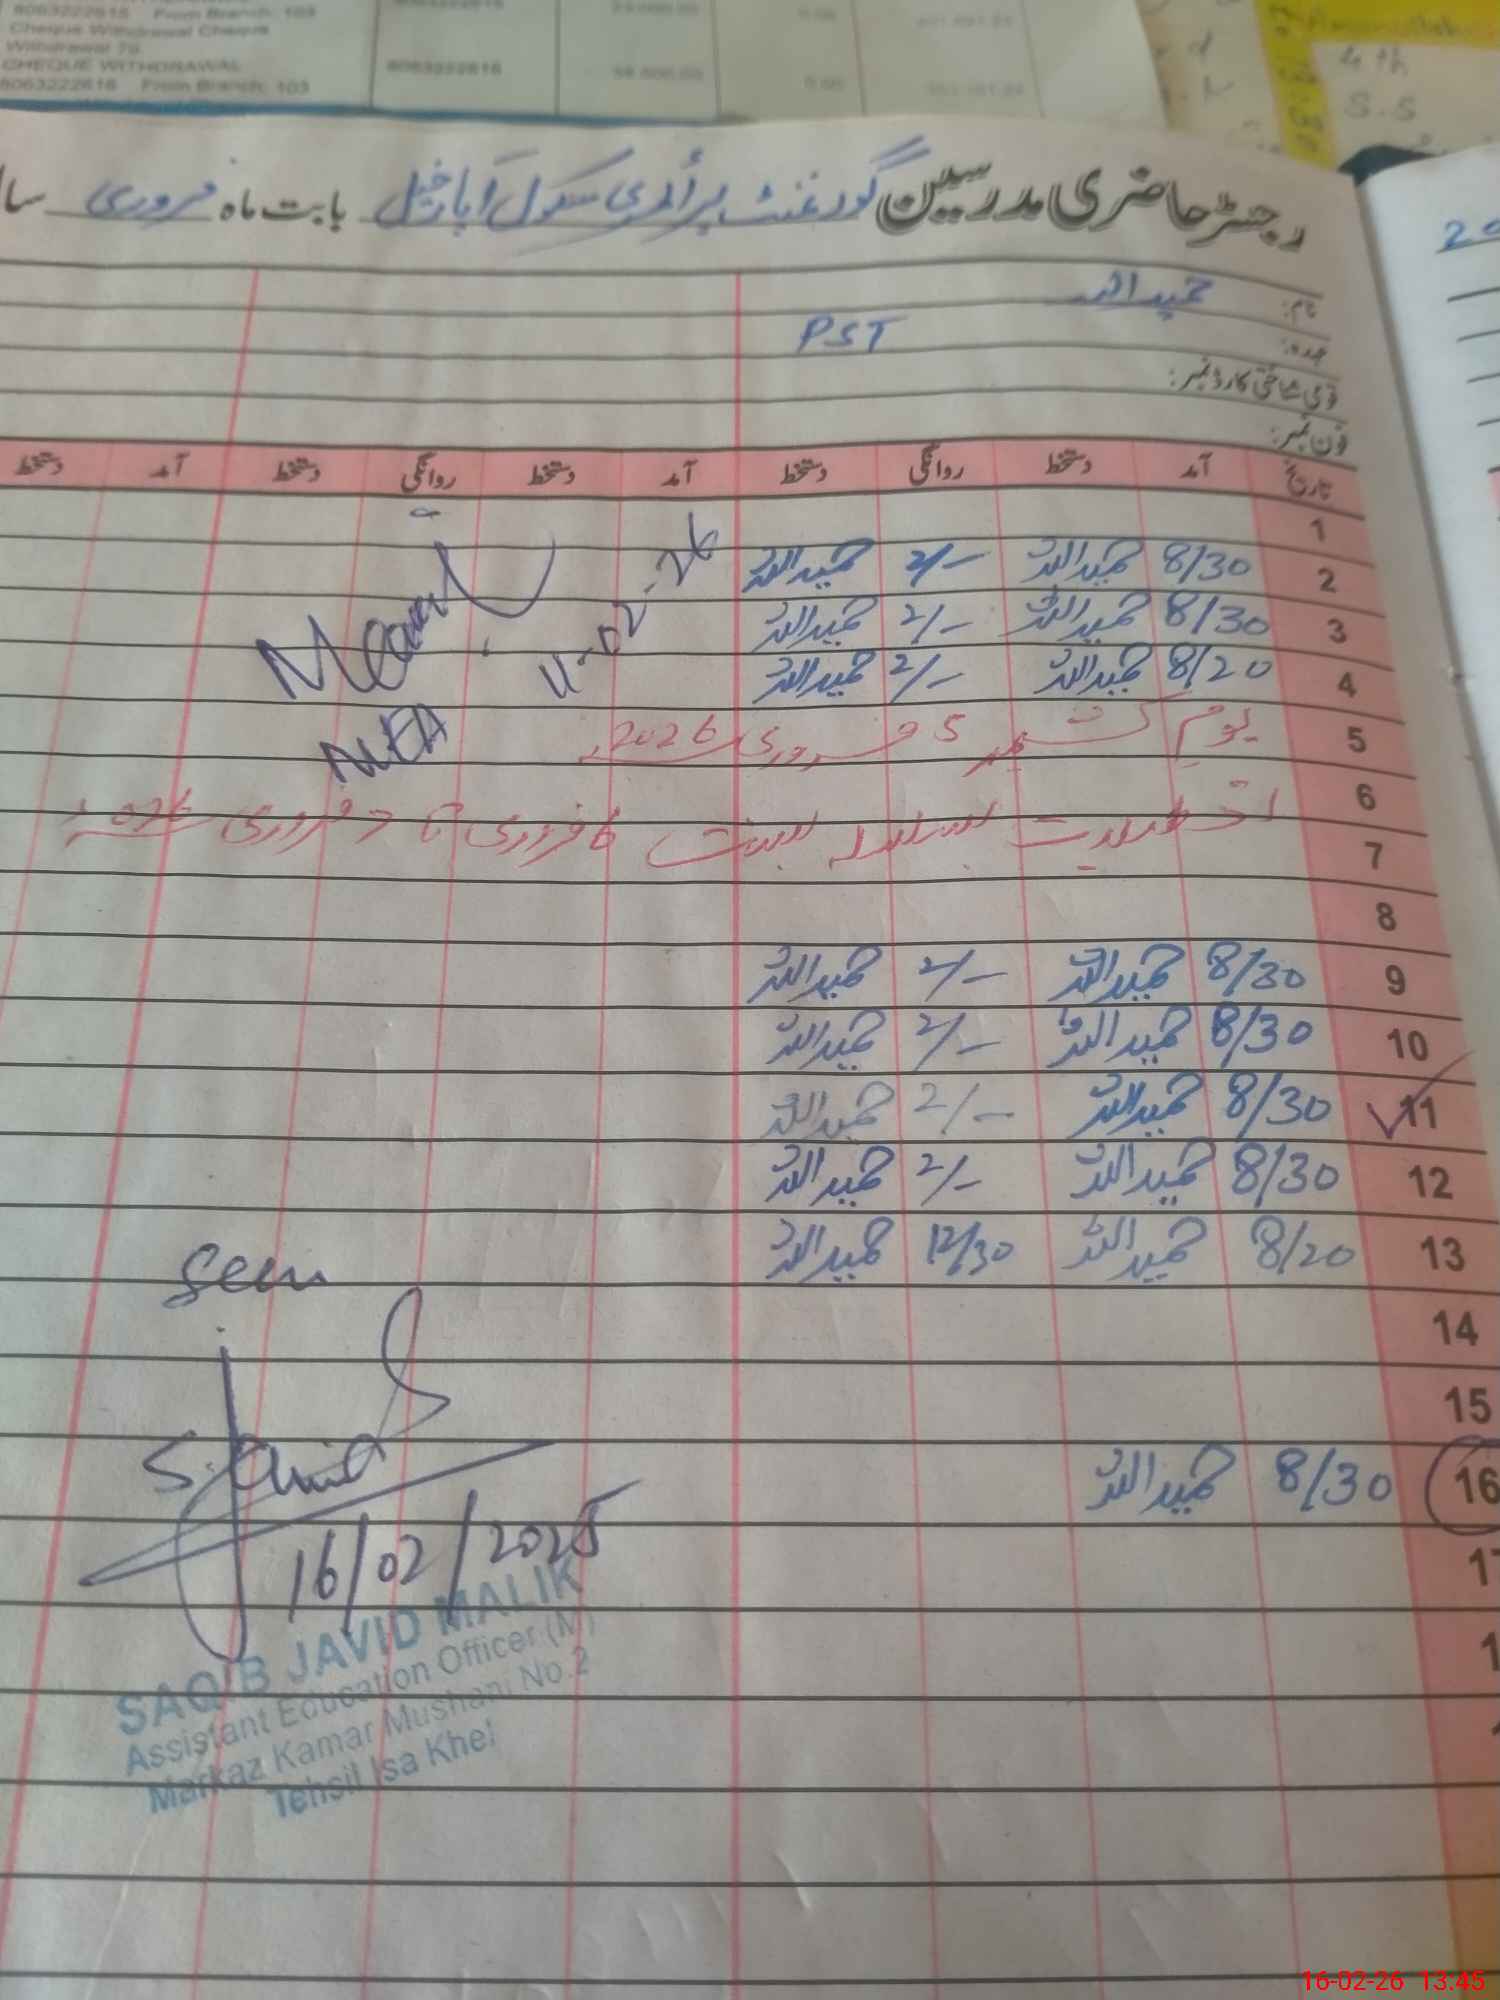 8063222616 From Branch: 103
Cheque Withdrawal Cheque
Withdrawal 79.
CHEQUE WITHDRAWAL 8063222616
8063222616 From Branch: 103
4 th
S.S
رجسٹر حاضری مدرسین گورنمنٹ پرائمری سکول اباخیل بابت ماہ فروری سا
20
نام: حمیداللہ
عہدہ: PST
قومی شناختی کارڈ نمبر:
فون نمبر:
تاریخ آمد دستخط روانگی دستخط آمد دستخط روانگی دستخط آمد دستخط
1
2 8/30 حمیداللہ 2/- حمیداللہ
3 8/30 حمیداللہ 2/- حمیداللہ
4 8/20 حمیداللہ 2/- حمیداللہ
11-02-26
AEA
5 یوم کشمیر 5 فروری 2026ء
6
تعطیلات بسلسلہ بسنت 6 فروری تا 7 فروری 2026ء
7
8
9 8/30 حمیداللہ 2/- حمیداللہ
10 8/30 حمیداللہ 2/- حمیداللہ
11 8/30 حمیداللہ 2/- حمیداللہ
12 8/30 حمیداللہ 2/- حمیداللہ
13 8/20 حمیداللہ 12/30 حمیداللہ
Seen
14
15
16 8/30 حمیداللہ
S.Javid
16/02/2025
SAQIB JAVID MALIK
Assistant Education Officer (M)
Markaz Kamar Mushani No.2
Tehsil Isa Khel
16-02-26 13:45